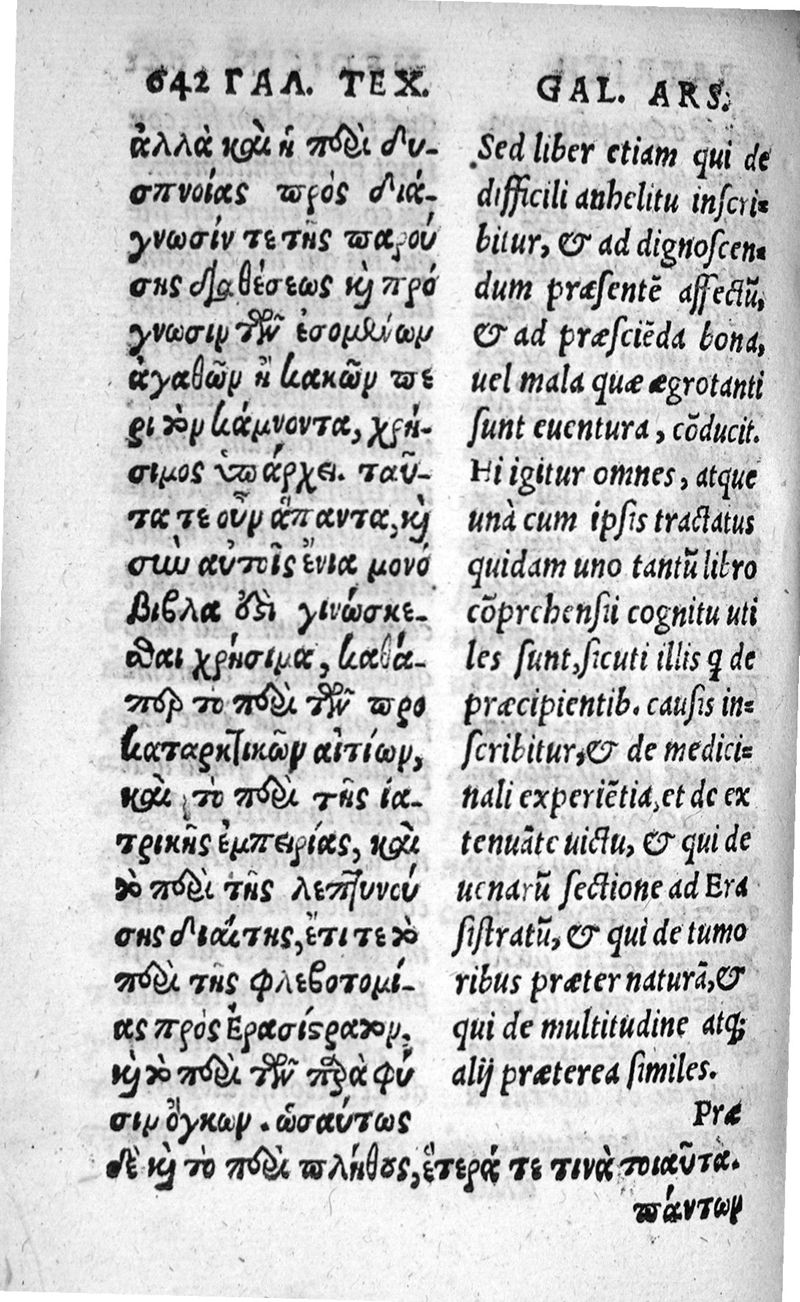 642 ΓΑΛ. ΤΕΧ.
ἀλλὰ καὶ ἡ περὶ δυ-
σπνοίας πρὸς διά-
γνωσίν τε τῆς παρού
σης διαθέσεως καὶ πρό
γνωσιν τῶν ἐσομένων
ἀγαθῶν ἢ κακῶν πε
ρι τὸν κάμνοντα, χρή-
σιμος ὑπάρχει. ταῦ-
τα τε οὖν ἅπαντα, καὶ
σὺν αὐτοῖς ἔνια μονό
βιβλα ἐστὶ γινώσκε-
σθαι χρήσιμα, καθά-
περ το περὶ τῶν προ
καταρκτικῶν αἰτίων,
καὶ το περὶ τῆς ἰα-
τρικῆς ἐμπειρίας, καὶ
τὸ περὶ τῆς λεπτυνού
σης διαίτης, ἔτι τε τὸ
περὶ τῆς φλεβοτομί-
ας πρὸς Ἐρασίστρατον,
καὶ τὸ περὶ τῶν παρὰ φύ
σιν ὄγκων. ὡσαύτως
δὲ καὶ τὸ περὶ πλήθους, ἕτερά τε τινὰ τοιαῦτα.
πάντων
GAL. ARS.
Sed liber etiam qui de
difficili anhelitu inscri-
bitur, & ad dignoscen-
dum præsentē affectū,
& ad præsciēda bona,
uel mala quæ ægrotanti
sunt euentura, cōducit.
Hi igitur omnes, atque
unà cum ipsis tractatus
quidam uno tantū libro
cōprehensii cognitu uti
les sunt, sicuti illis q de
præcipientib. causis in-
scribitur, & de medici-
nali experiētia, et de ex
tenuāte uictu, & qui de
uenarū sectione ad Era
sistratū, & qui de tumo
ribus præter naturā, &
qui de multitudine atq;
alij præterea similes.
Præ